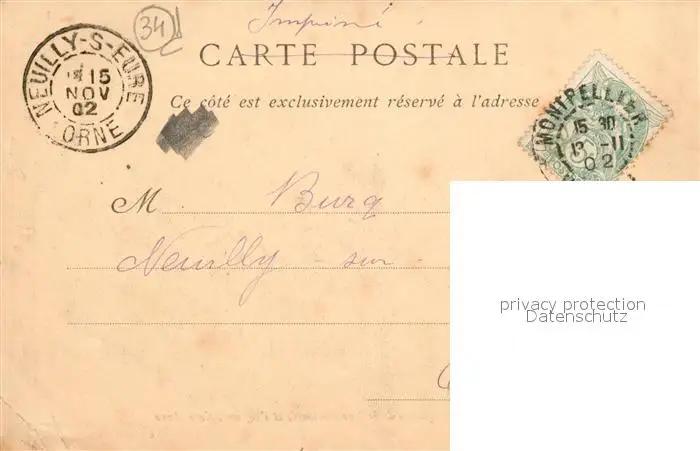 34
Imprimé
CARTE POSTALE
Ce côté est exclusivement réservé à l'adresse
NEUILLY-S-EURE
15
NOV
02
ORNE
MONTPELLIER
15 30
13 -11
02
M Burq
Neuilly - sur -
privacy protection
Datenschutz